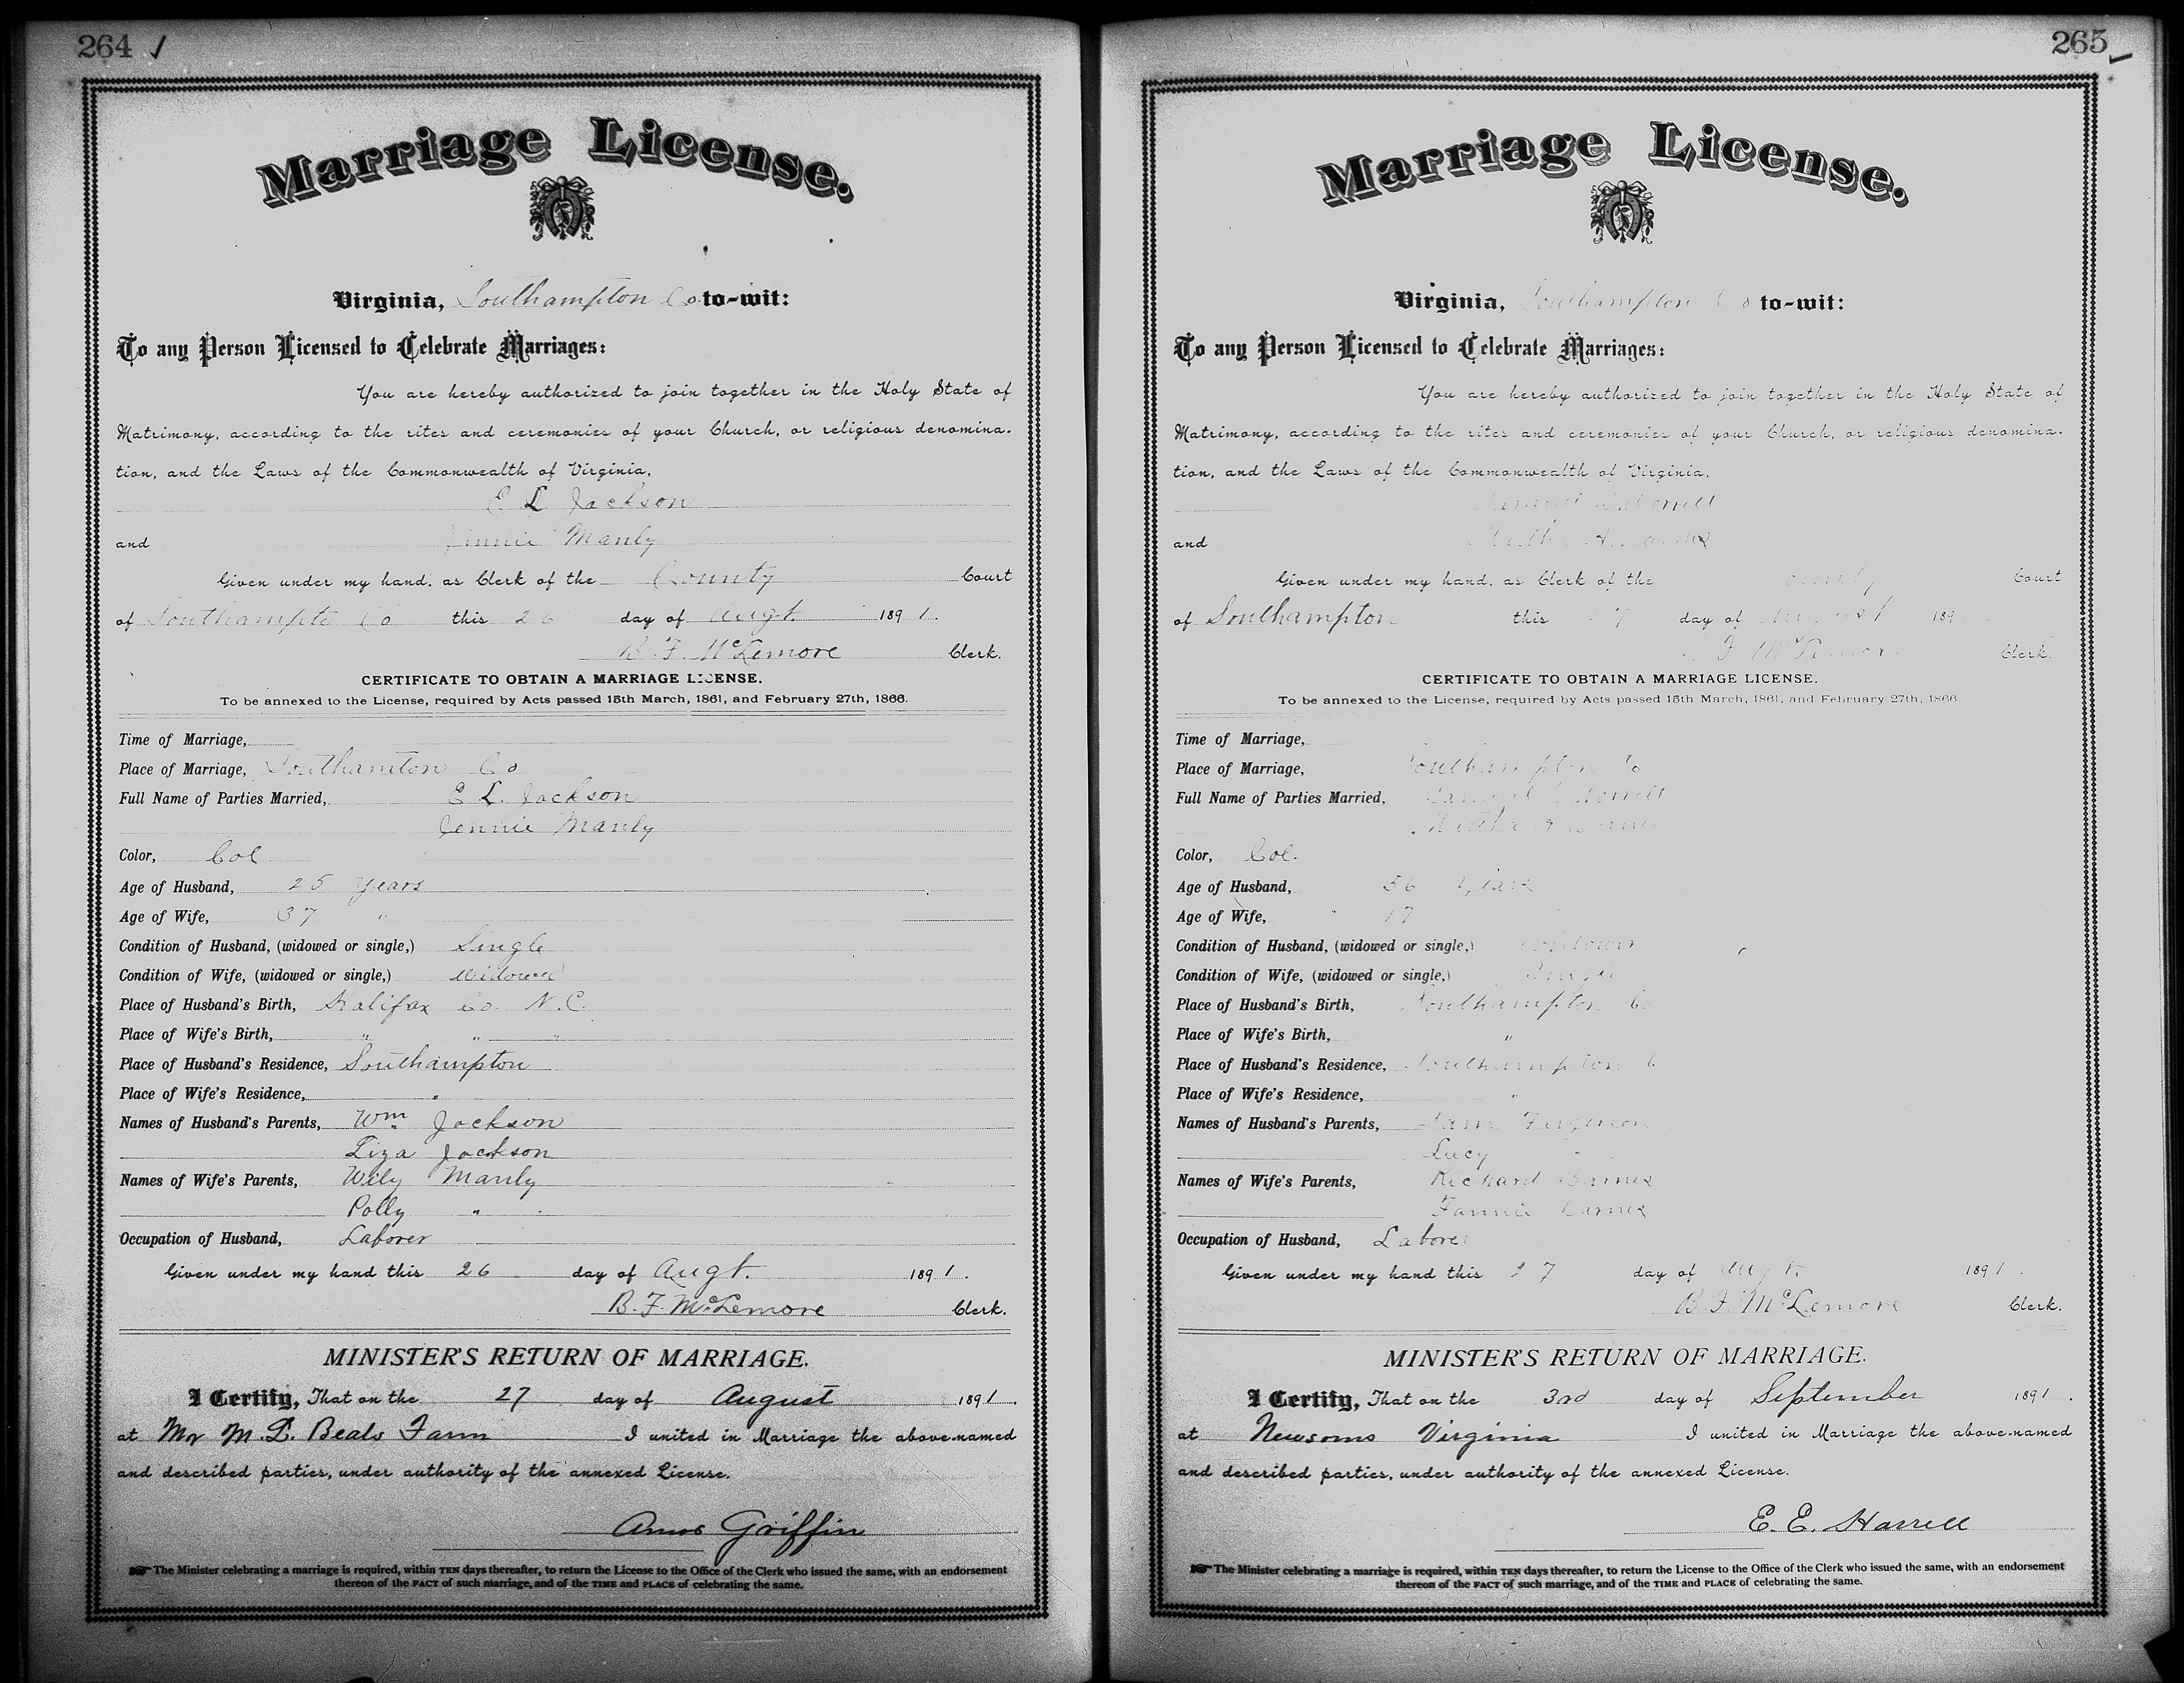 264 ✓
Marriage License.
Virginia, Southampton Co to-wit:
To any Person Licensed to Celebrate Marriages:
You are hereby authorized to join together in the Holy State of
Matrimony, according to the rites and ceremonies of your Church, or religious denomina-
tion, and the Laws of the Commonwealth of Virginia,
E L Jackson
and Jennie Manly
Given under my hand, as Clerk of the County Court
of Southampto Co this 26 day of Augt. 1891.
B. F. McLemore Clerk.
CERTIFICATE TO OBTAIN A MARRIAGE LICENSE.
To be annexed to the License, required by Acts passed 15th March, 1861, and February 27th, 1866.
Time of Marriage,
Place of Marriage, Southamton Co
Full Name of Parties Married, E L. Jackson
Jennie Manly
Color, Col
Age of Husband, 25 years
Age of Wife, 37 "
Condition of Husband, (widowed or single,) Single
Condition of Wife, (widowed or single,) Widowed
Place of Husband's Birth, Halifax Co. N.C.
Place of Wife's Birth, " " "
Place of Husband's Residence, Southampton
Place of Wife's Residence, "
Names of Husband's Parents, Wm Jackson
Liza Jackson
Names of Wife's Parents, Wily Manly
Polly "
Occupation of Husband, Laborer
Given under my hand this 26 day of Augt. 1891.
B. F. McLemore Clerk.
MINISTER'S RETURN OF MARRIAGE.
I Certify, That on the 27 day of August 1891.
at Mr M. L. Beals Farm I united in Marriage the above-named
and described parties, under authority of the annexed License.
Amos Griffin
The Minister celebrating a marriage is required, within TEN days thereafter, to return the License to the Office of the Clerk who issued the same, with an endorsement
thereon of the FACT of such marriage, and of the TIME and PLACE of celebrating the same.
265
Marriage License.
Virginia, Southampton Co to-wit:
To any Person Licensed to Celebrate Marriages:
You are hereby authorized to join together in the Holy State of
Matrimony, according to the rites and ceremonies of your Church, or religious denomina-
tion, and the Laws of the Commonwealth of Virginia,
Samuel
and
Given under my hand, as Clerk of the County Court
of Southampton this 27 day of August 189
F McLemore Clerk.
CERTIFICATE TO OBTAIN A MARRIAGE LICENSE.
To be annexed to the License, required by Acts passed 15th March, 1861, and February 27th, 1866
Time of Marriage,
Place of Marriage, Southampton Co
Full Name of Parties Married, Samuel
Color, Col.
Age of Husband, 56 years
Age of Wife, 17
Condition of Husband, (widowed or single,)
Condition of Wife, (widowed or single,) Single
Place of Husband's Birth, Southampton Co
Place of Wife's Birth, "
Place of Husband's Residence, Southampton C
Place of Wife's Residence, "
Names of Husband's Parents, Sam
Lucy
Names of Wife's Parents, Richard Barnes
Fannie Barnes
Occupation of Husband, Laborer
Given under my hand this 27 day of Augt. 1891.
B. F. McLemore Clerk.
MINISTER'S RETURN OF MARRIAGE.
I Certify, That on the 3rd day of September 1891.
at Newsoms Virginia I united in Marriage the above-named
and described parties, under authority of the annexed License.
E. E. Harrell
The Minister celebrating a marriage is required, within TEN days thereafter, to return the License to the Office of the Clerk who issued the same, with an endorsement
thereon of the FACT of such marriage, and of the TIME and PLACE of celebrating the same.